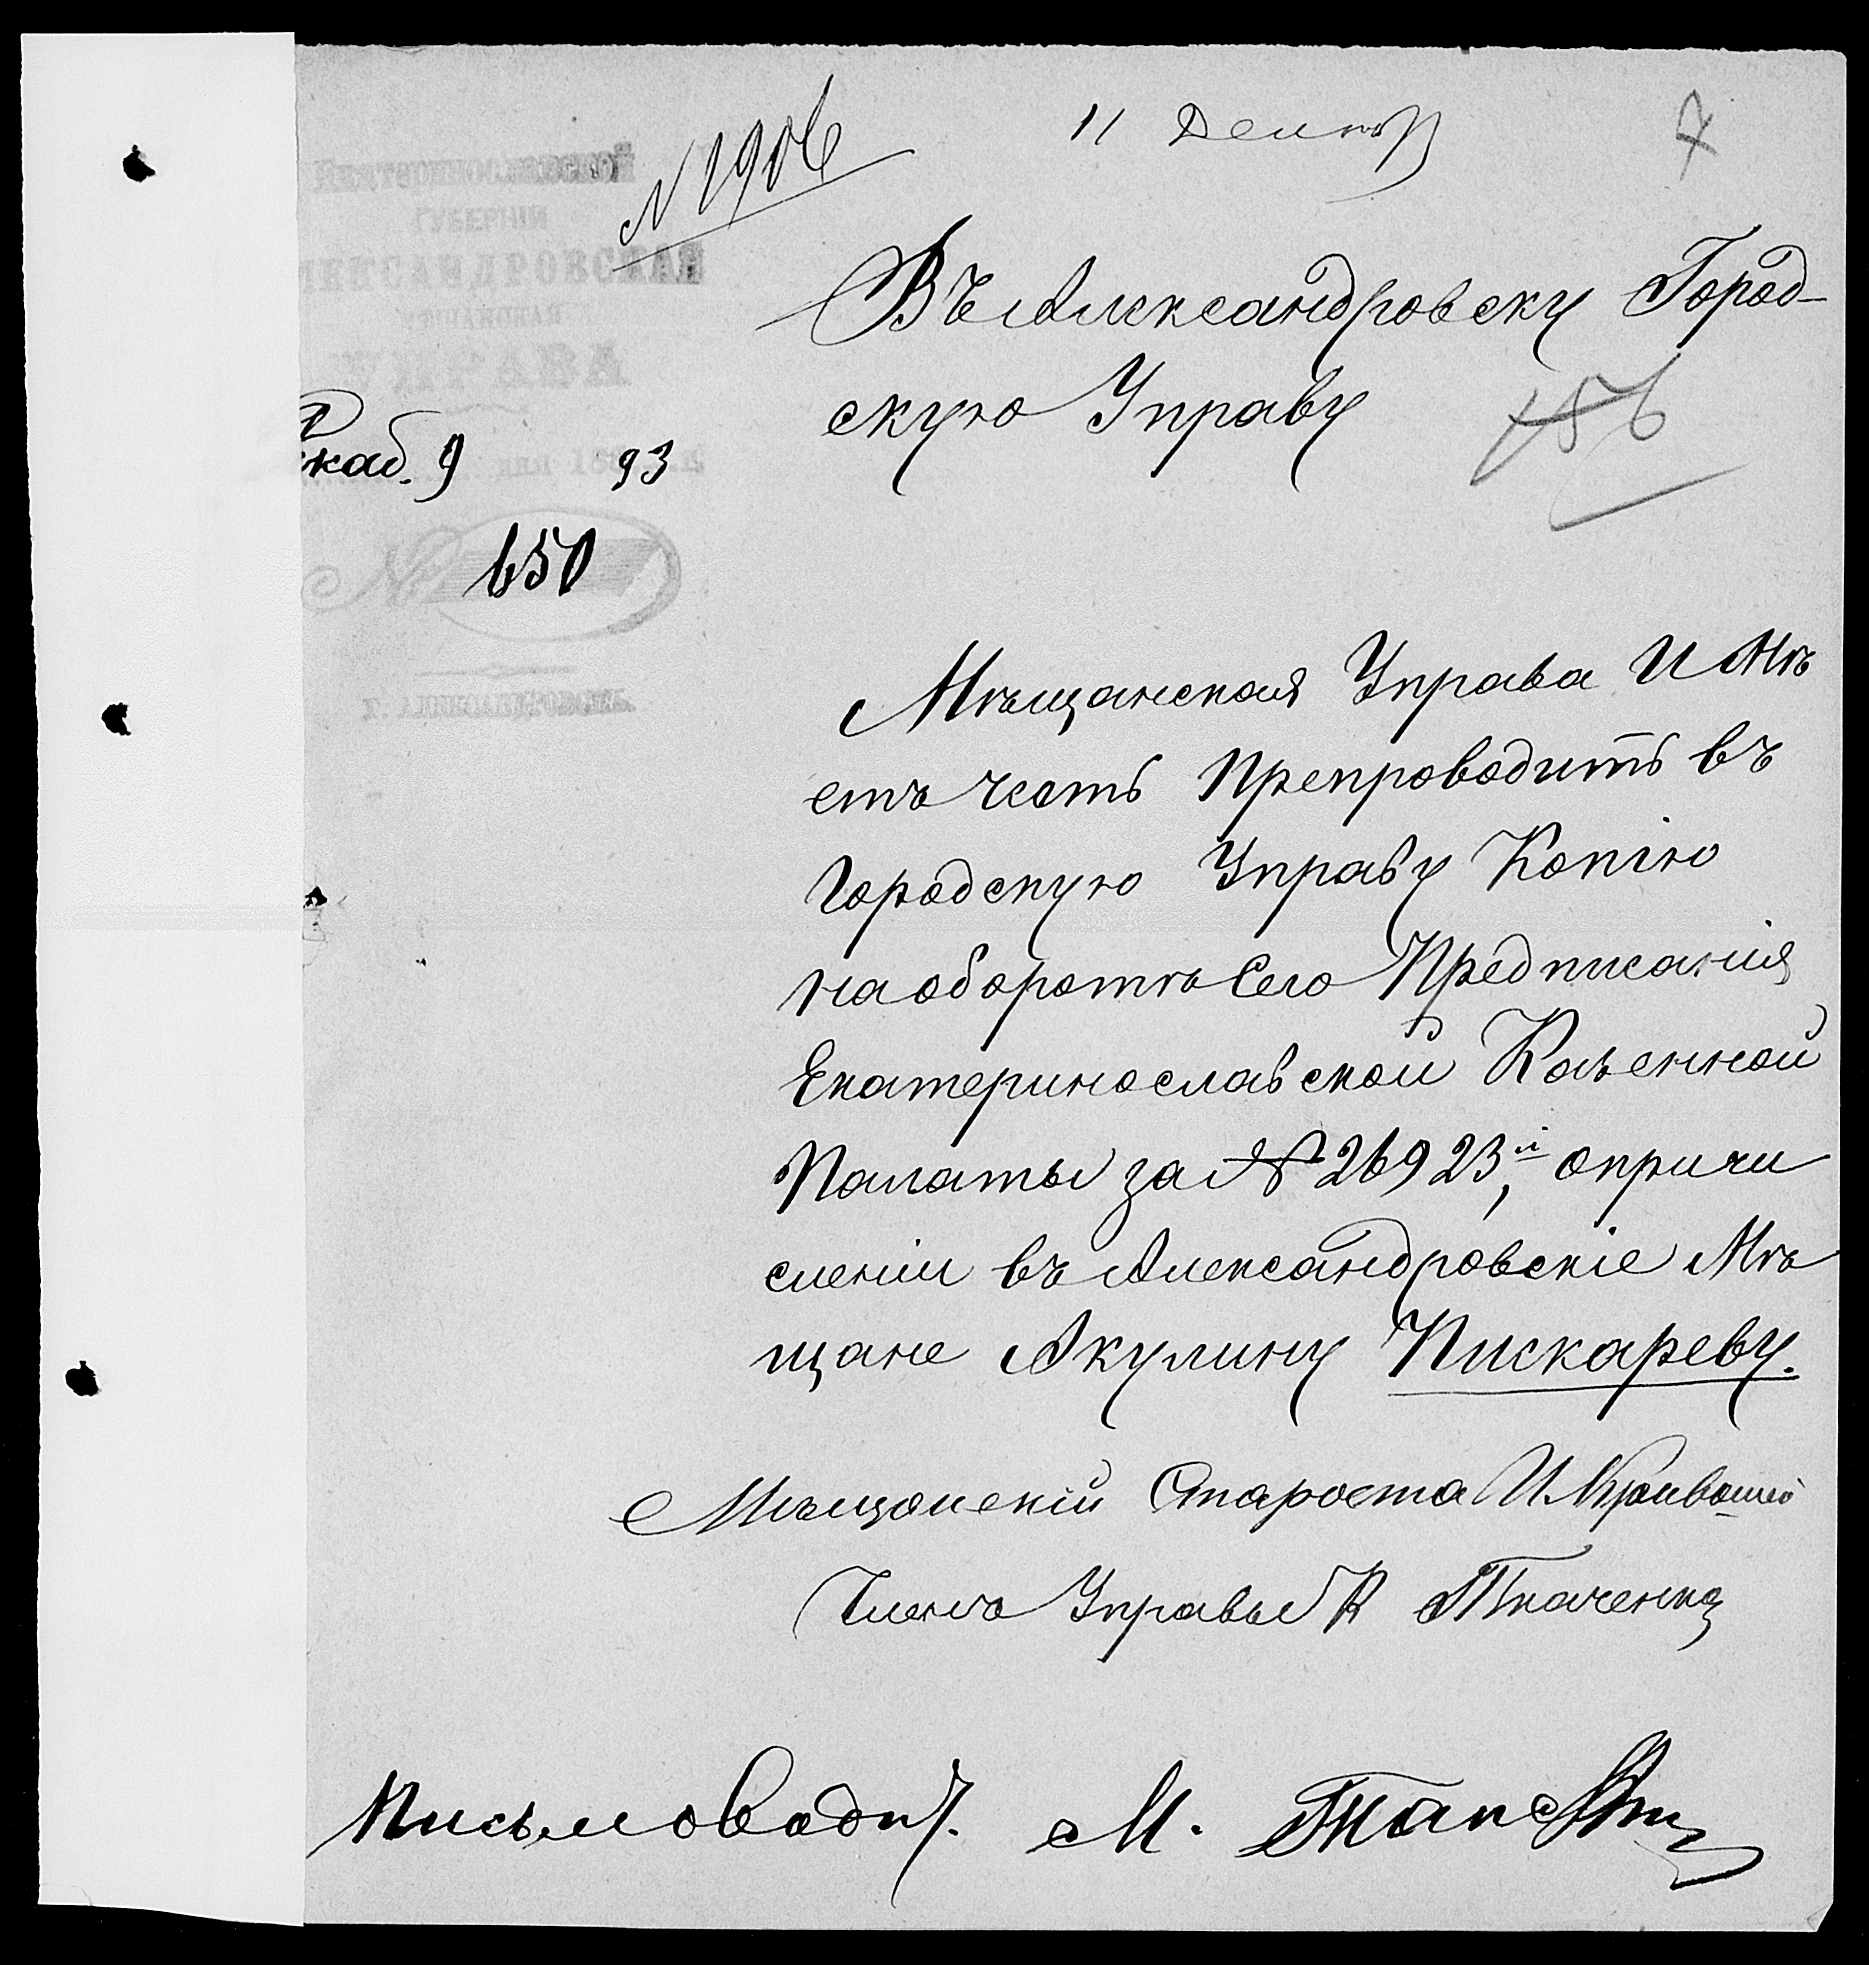 N 1906
11 Декабр
7
Екатеринославской
ГУБЕРНІИ
АЛЕКСАНДРОВСКАЯ
МѢЩАНСКАЯ
УПРАВА
каб. 9 дня 1893
№ 650
г. АЛЕКСАНДРОВСКЪ.
Въ Александровску Город-
скую Управу
456
Мѣщанская Управа ИМѣ
етъ честь Препроводить въ
Городскую Управу Копію
на оборотѣ Сего Предписанія
Екатеринославской Казенной
Палаты за № 26923й, опричи
сленіи въ Александровскіе Мѣ
щане Акулину Пискареву.
Мѣщанскій Староста И. Кривошей
Членъ Управы К Ткаченко
Письмовод. М.